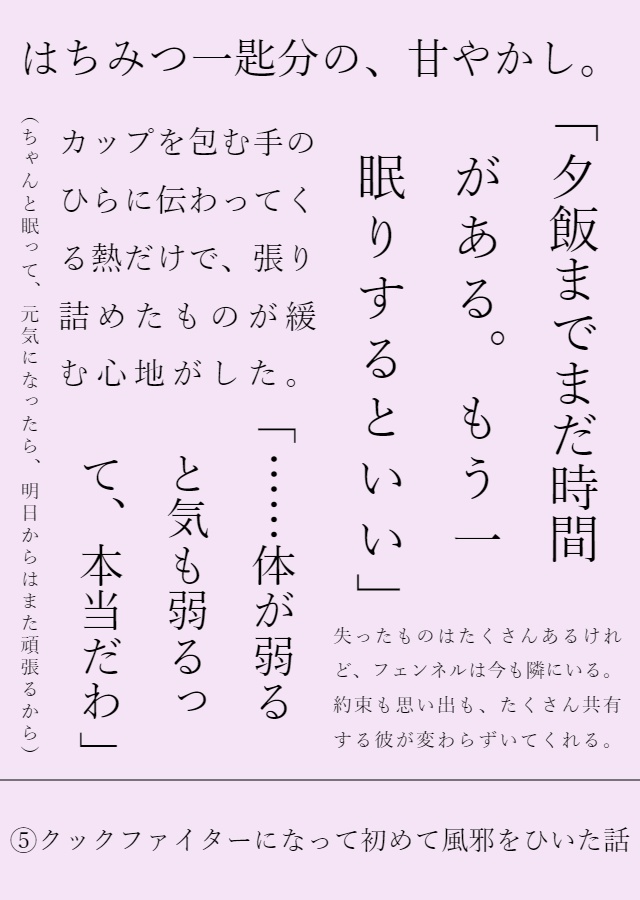 はちみつ一匙分の、甘やかし。
「夕飯までまだ時間
がある。もう一
眠りするといい」
カップを包む手の
ひらに伝わってく
る熱だけで、張り
詰めたものが緩
む心地がした。
「……体が弱る
と気も弱るっ
て、本当だわ」
失ったものはたくさんあるけれ
ど、フェンネルは今も隣にいる。
約束も思い出も、たくさん共有
する彼が変わらずいてくれる。
(ちゃんと眠って、元気になったら、明日からはまた頑張るから)
⑤クックファイターになって初めて風邪をひいた話